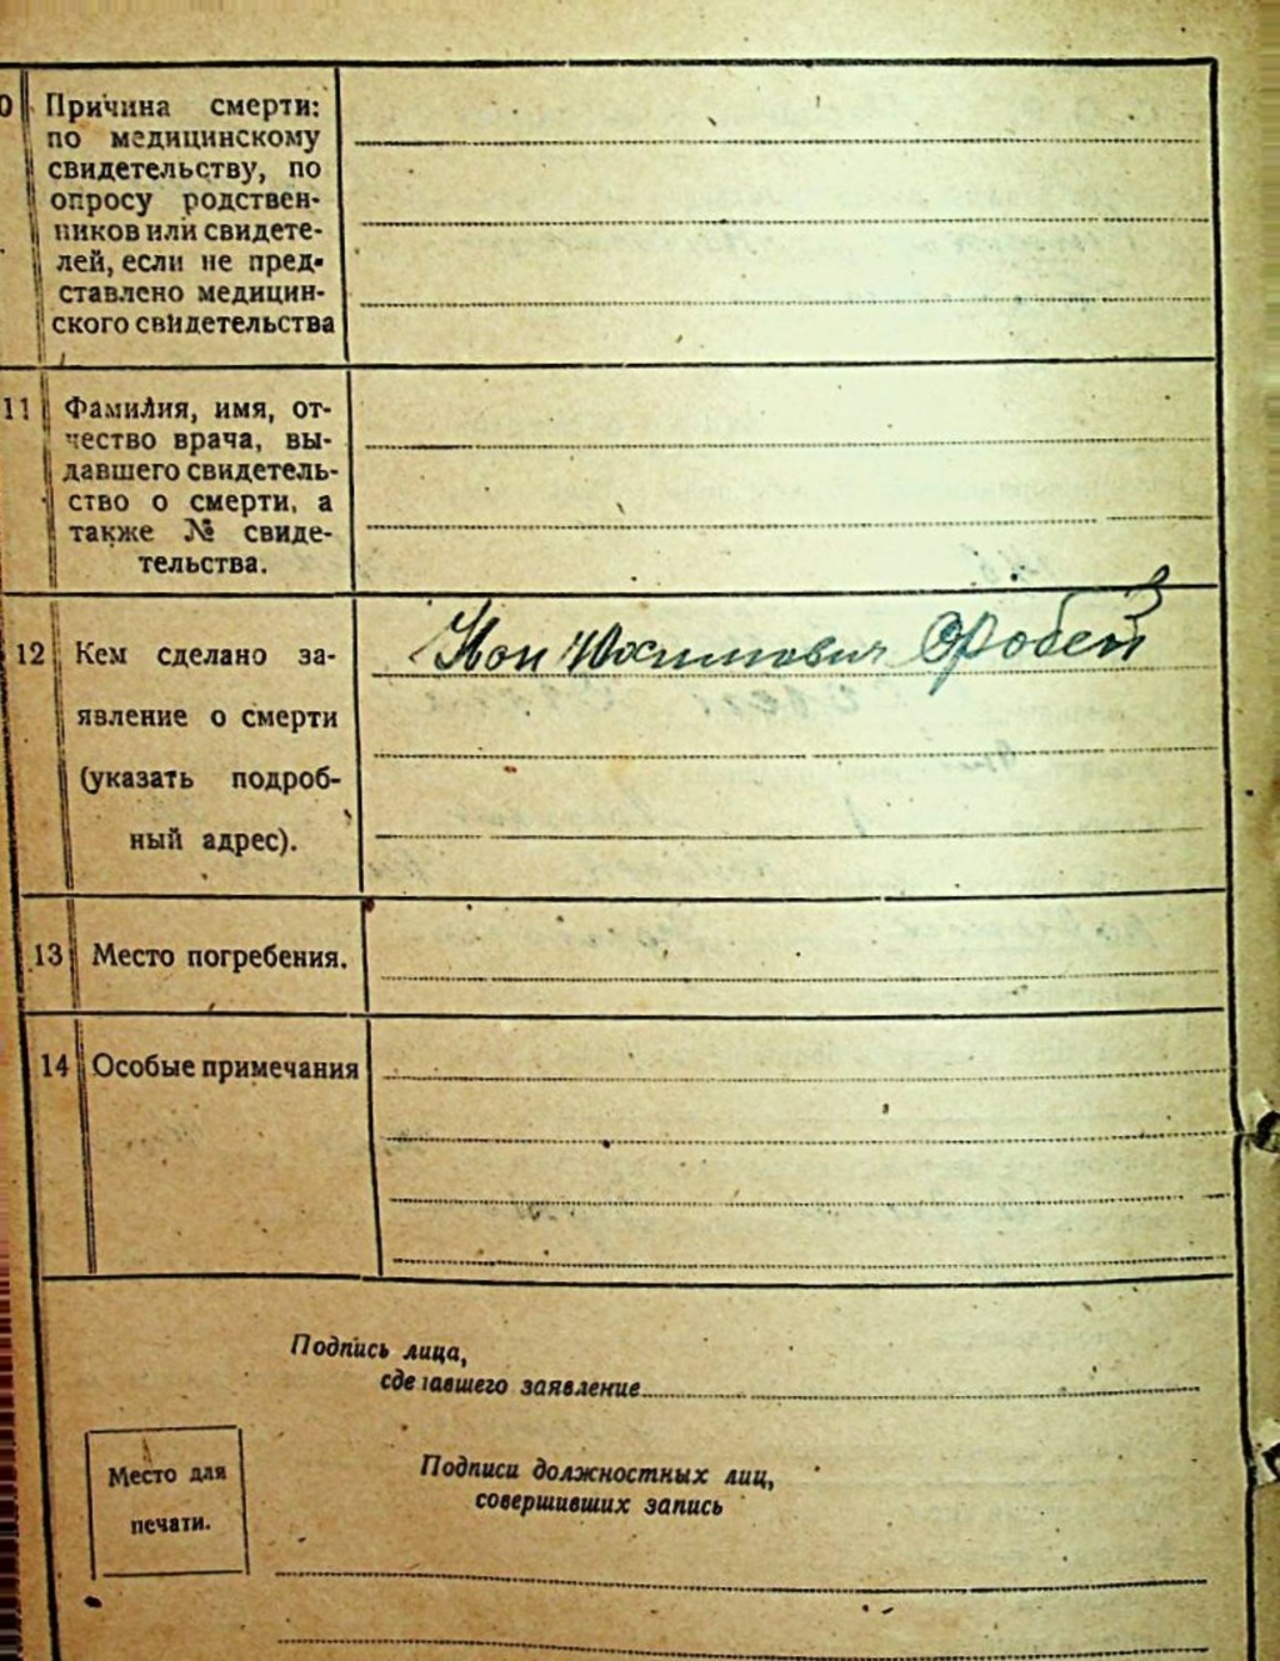 0 Причина смерти:
по медицинскому
свидетельству, по
опросу родствен-
ников или свидете-
лей, если не пред-
ставлено медицин-
ского свидетельства
11 Фамилия, имя, от-
чество врача, вы-
давшего свидетель-
ство о смерти, а
также № свиде-
тельства.
12 Кем сделано за-
явление о смерти
(указать подроб-
ный адрес).
13 Место погребения.
14 Особые примечания
Подпись лица,
сделавшего заявление
Место для
печати.
Подписи должностных лиц,
совершивших запись